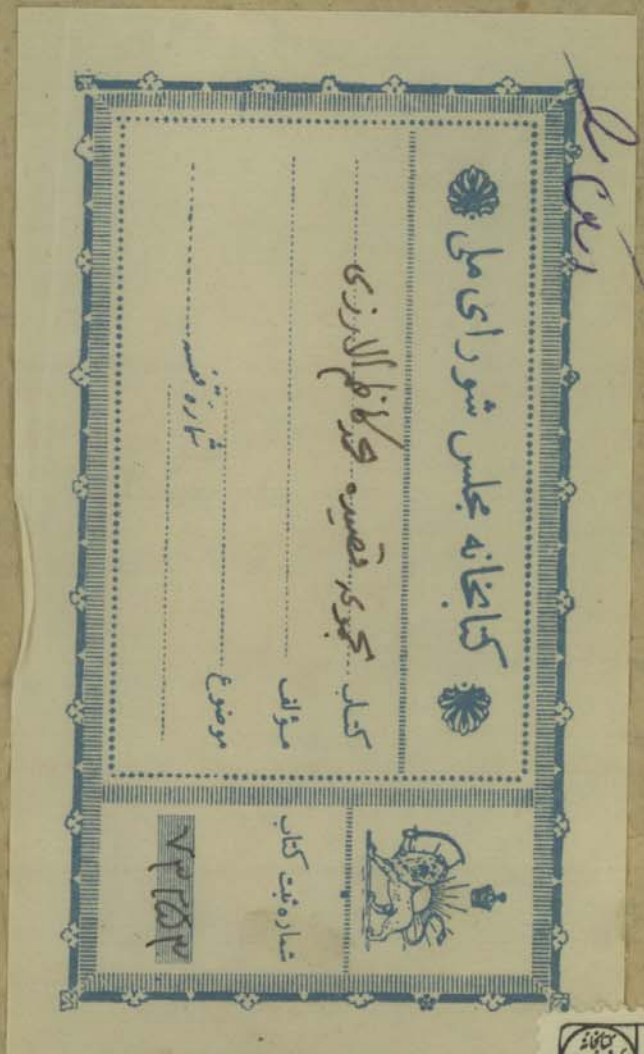 کتابخانه مجلس شورای ملی
کتاب مجموعه قصیده محمد کاظم الازری
مؤلف
موضوع
شماره قفسه
شماره ثبت کتاب
۷۳۲۵۳